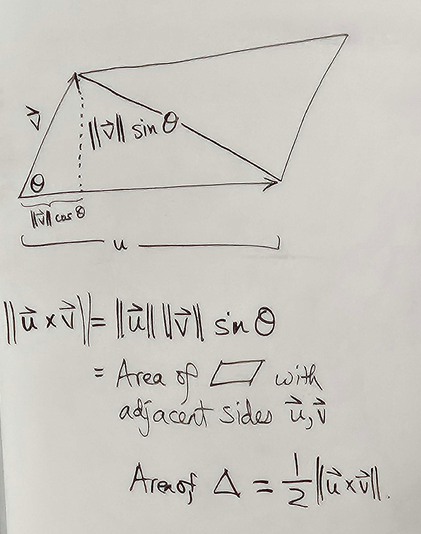 v⃗
‖v⃗‖ sin θ
θ
‖v⃗‖ cos θ
u
‖u⃗ × v⃗‖ = ‖u⃗‖ ‖v⃗‖ sin θ
= Area of ▱ with
adjacent sides u⃗, v⃗
Area of Δ = 1/2 ‖u⃗ × v⃗‖.